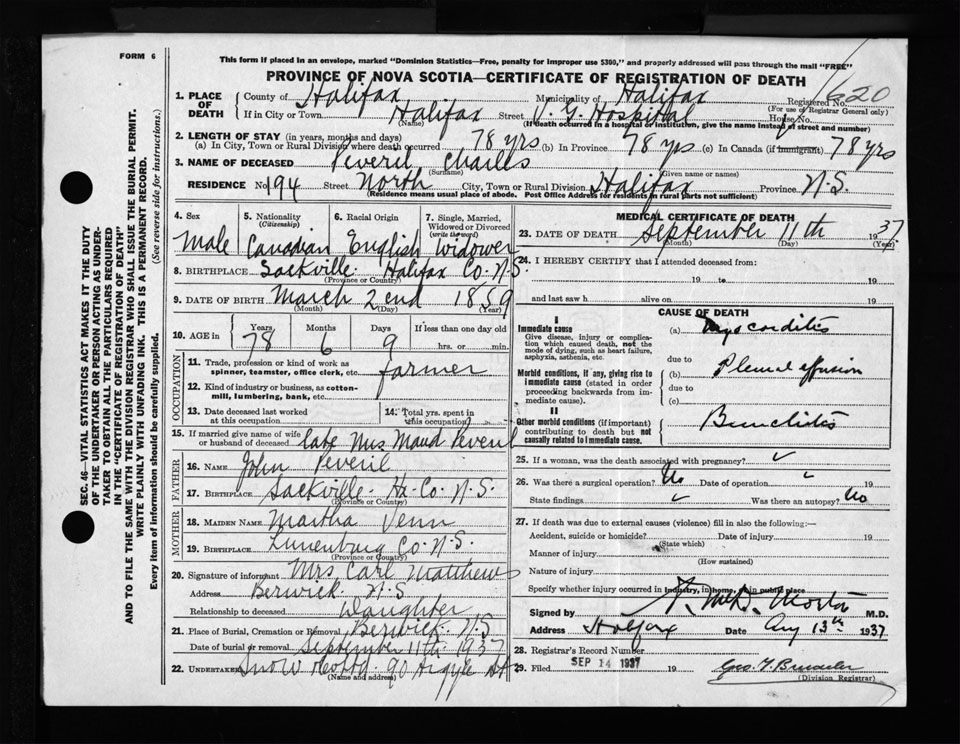 FORM 6
This form if placed in an envelope, marked "Dominion Statistics—Free, penalty for improper use $300," and properly addressed will pass through the mail "FREE"
PROVINCE OF NOVA SCOTIA—CERTIFICATE OF REGISTRATION OF DEATH
1620
1. PLACE OF DEATH
County of Halifax Municipality of Halifax Registered No.
(For use of Registrar General only)
If in City or Town Halifax Street V. G. Hospital House No.
(Name) (If death occurred in a hospital or institution, give the name instead of street and number)
2. LENGTH OF STAY (in years, months and days)
(a) In City, Town or Rural Division where death occurred 78 yrs (b) In Province 78 yrs (c) In Canada (if immigrant) 78 yrs
3. NAME OF DECEASED Peveril Charles
(Surname) (Given name or names)
RESIDENCE No. 194 Street North City, Town or Rural Division Halifax Province N.S.
(Residence means usual place of abode. Post Office Address for residents in rural parts not sufficient)
4. Sex Male
5. Nationality (Citizenship) Canadian
6. Racial Origin English
7. Single, Married, Widowed or Divorced (write the word) Widower
8. BIRTHPLACE Sackville Halifax Co. N.S.
(Province or Country)
9. DATE OF BIRTH March 2end 1859
(Month) (Day) (Year)
10. AGE in Years 78 Months 6 Days 9 If less than one day old hrs. or min.
OCCUPATION
11. Trade, profession or kind of work as spinner, teamster, office clerk, etc. farmer
12. Kind of industry or business, as cotton-mill, lumbering, bank, etc.
13. Date deceased last worked at this occupation
14. Total yrs. spent in this occupation
15. If married give name of wife or husband of deceased late Mrs Maud Peveril
FATHER
16. NAME John Peveril
17. BIRTHPLACE Sackville Hx. Co. N.S.
(Province or Country)
MOTHER
18. MAIDEN NAME Martha Venn
19. BIRTHPLACE Lunenburg Co. N.S.
(Province or Country)
20. Signature of informant Mrs Carl Matthews
Address Berwick N.S.
Relationship to deceased Daughter
21. Place of Burial, Cremation or Removal Berwick N.S
Date of burial or removal September 11th 1937
22. Undertaker Snow 90 Argyle St
(Name and address)
MEDICAL CERTIFICATE OF DEATH
23. DATE OF DEATH September 11th 1937
(Month) (Day) (Year)
24. I HEREBY CERTIFY that I attended deceased from:
19 to 19
and last saw h alive on 19
CAUSE OF DEATH
I
Immediate cause
Give disease, injury or complication which caused death, not the mode of dying, such as heart failure, asphyxia, asthenia, etc.
(a) Myocarditis
due to
Morbid conditions, if any, giving rise to immediate cause (stated in order proceeding backwards from immediate cause).
(b) Pleural effusion
due to
(c)
II
Other morbid conditions (if important) contributing to death but not causally related to immediate cause.
Bronchitis
25. If a woman, was the death associated with pregnancy?
26. Was there a surgical operation? No Date of operation 19
State findings Was there an autopsy? No
27. If death was due to external causes (violence) fill in also the following:—
Accident, suicide or homicide? Date of injury 19
(State which)
Manner of injury
(How sustained)
Nature of injury
Specify whether injury occurred in Industry, in home, or in public place
Signed by Morton M.D.
Address Halifax Date Aug 13th 1937
28. Registrar's Record Number
29. Filed SEP 14 1937 19
(Division Registrar)
SEC. 46—VITAL STATISTICS ACT MAKES IT THE DUTY
OF THE UNDERTAKER OR PERSON ACTING AS UNDER-
TAKER TO OBTAIN ALL THE PARTICULARS REQUIRED
IN THE "CERTIFICATE OF REGISTRATION OF DEATH"
AND TO FILE THE SAME WITH THE DIVISION REGISTRAR WHO SHALL ISSUE THE BURIAL PERMIT.
WRITE PLAINLY WITH UNFADING INK. THIS IS A PERMANENT RECORD.
Every item of information should be carefully supplied. (See reverse side for instructions.)